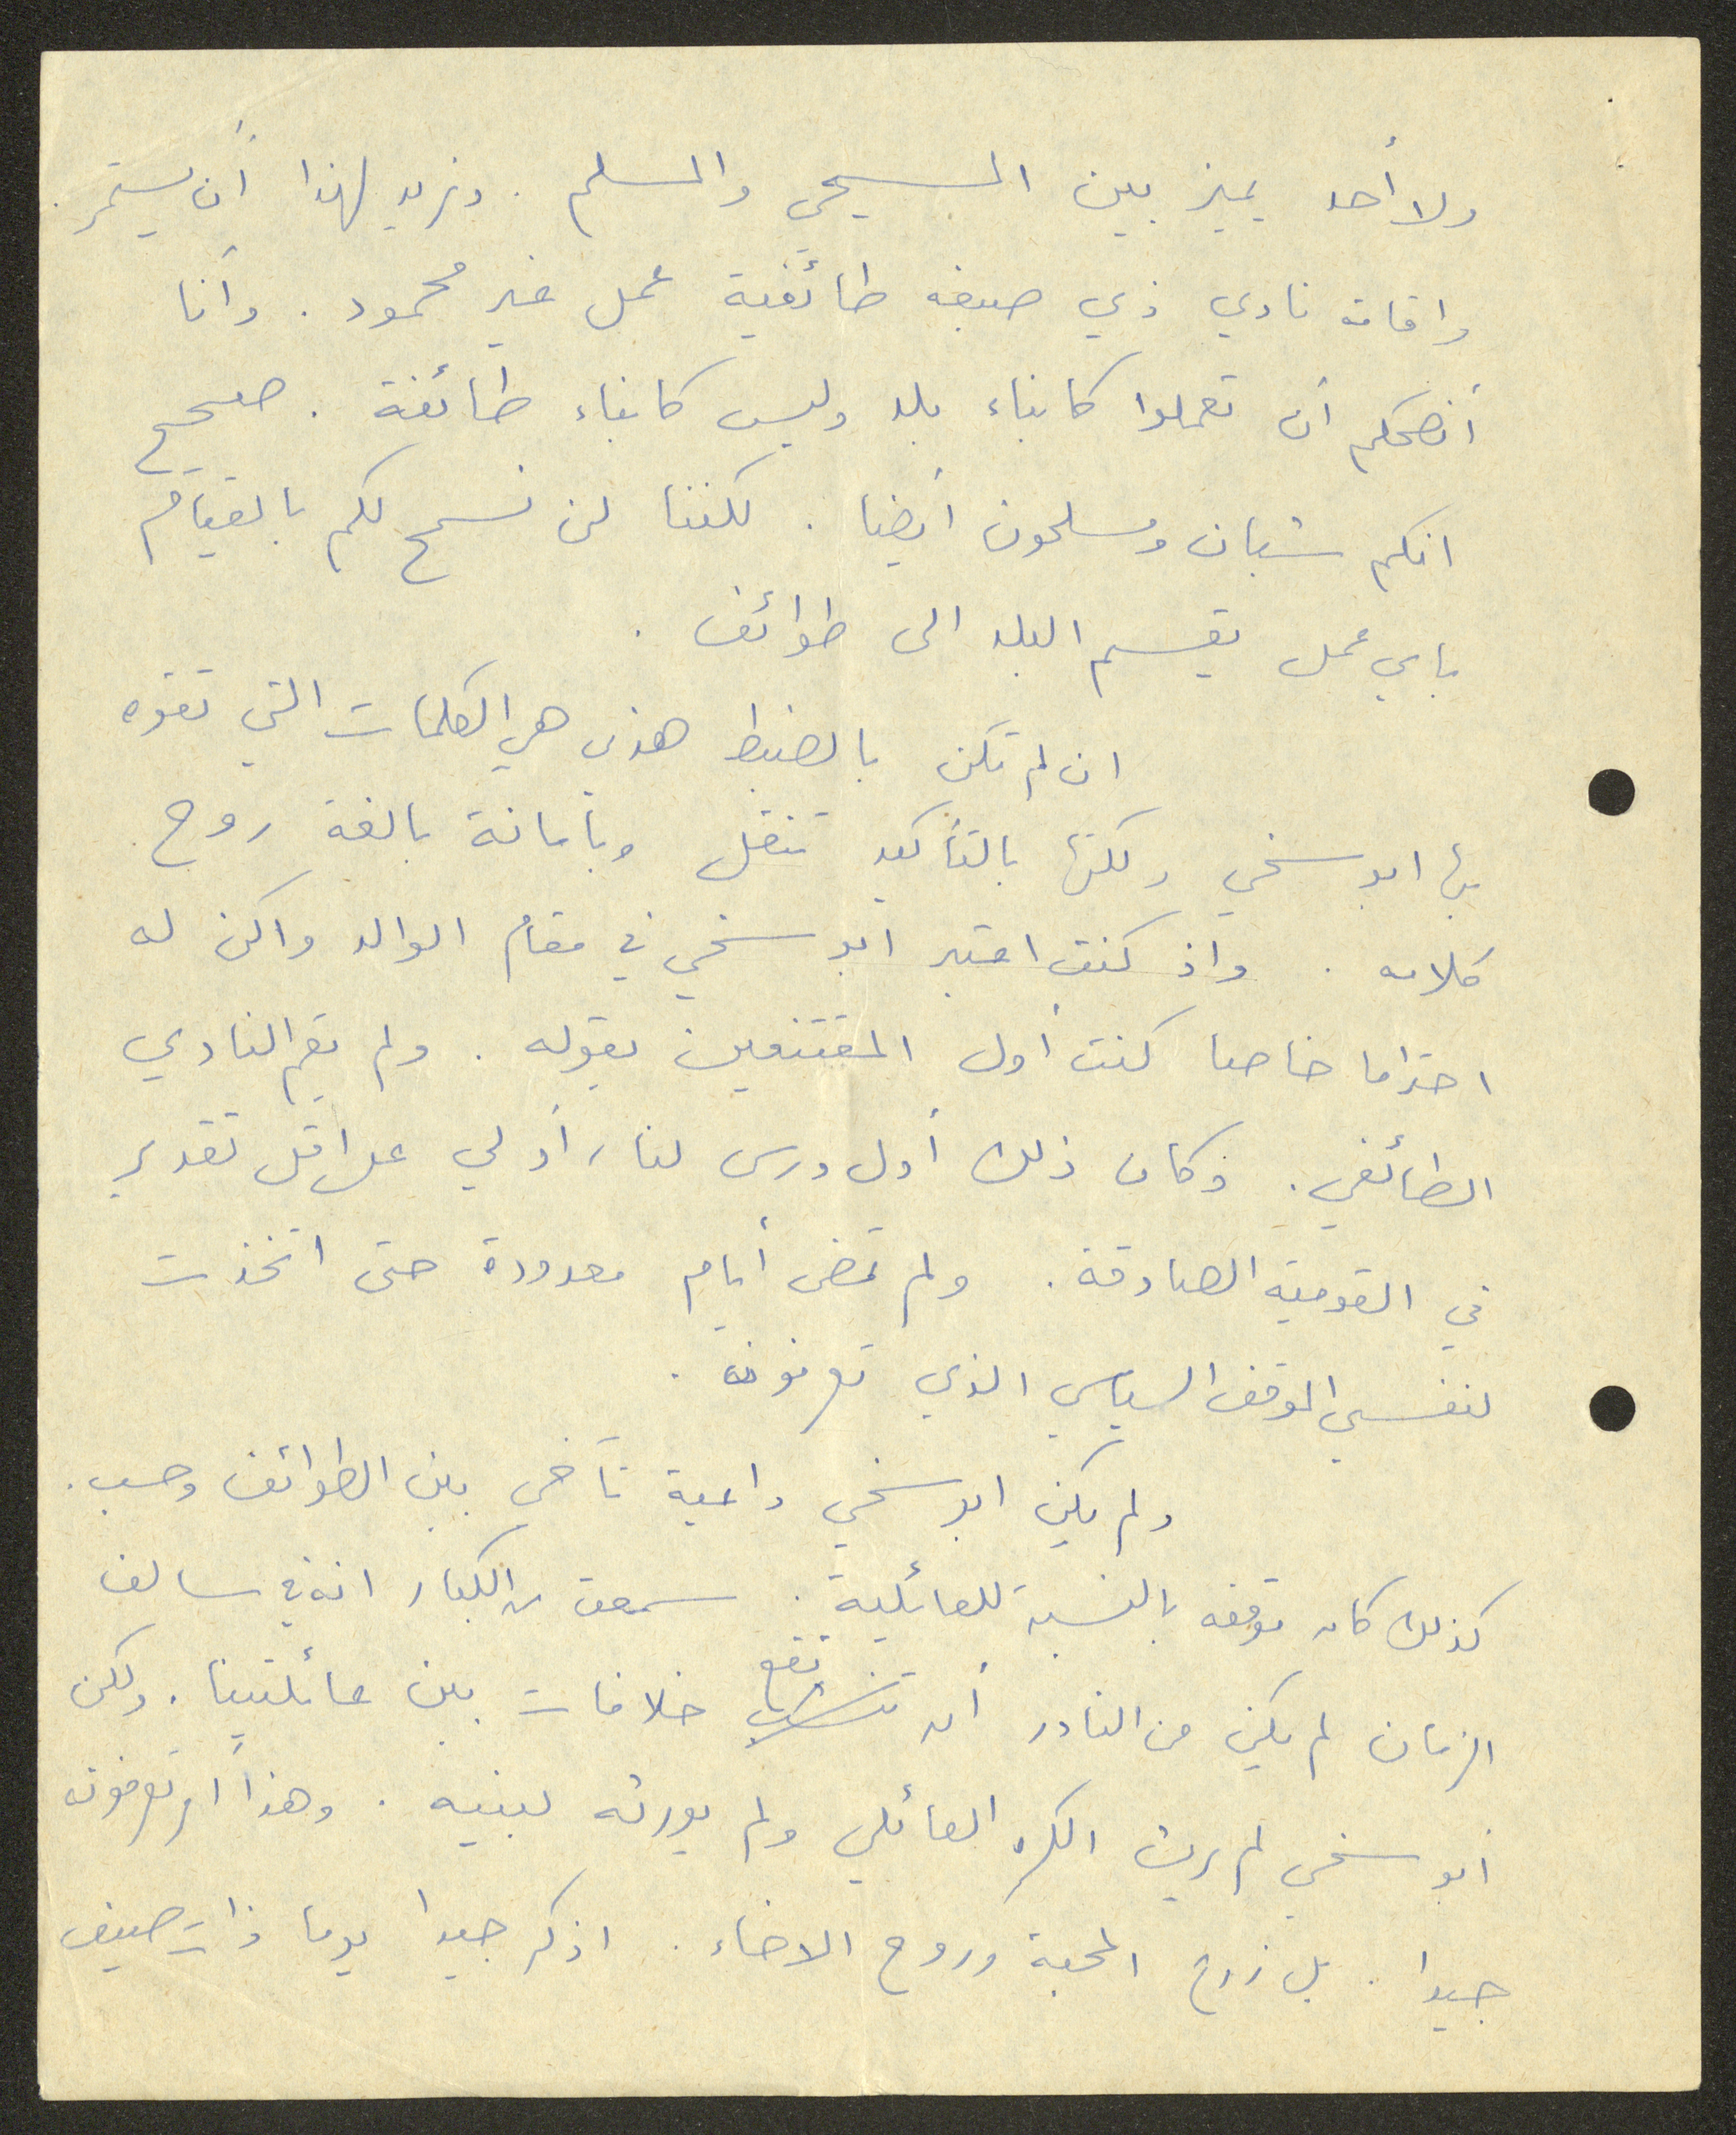 ولا أحد يميز بين المسيحي والمسلم . ونريد لهذا أن يستمر .
واقامة نادي ذي صبغة طائفية عمل غير محمود . وأنا
أنصحكم أن تعملوا كابناء بلد وليس كابناء طائفة . صحيح
انكم شبان ومسلمون أيضا . لكننا لن نسمح لكم بالقيام
باي عمل يقسم البلد الى طوائف .
ان لم تكن بالضبط هذه هي الكلمات التي تفوه
بها ابو سخي ولكنها بالتأكيد تنقل وبأمانة بالغة روح
كلامه . واذ كنت اعتبر ابو سخي في مقام الوالد واكن له
احتراما خاصا كنت أول المقتنعين بقوله . ولم يقم النادي
الطائفي . وكان ذلك أول درس لنا ، أو لي على اقل تقدير
في القومية الصادقة . ولم تمض أيام معدودة حتى اتخذت
لنفسي الموقف السياسي الذي تعرفونه .
ولم يكن ابو سخي داعية تآخي بين الطوائف وحسب .
كذلك كان موقفه بالنسبة للعائلية . سمعت من الكبار انه في سالف
الزمان لم يكن من النادر أن تقع خلافات بين عائلتينا . ولكن
أبو سخي لم يرث الكره العائلي ولم يورثه لبنيه . وهذا أمر تعرفونه
جيدا . بل زرع المحبة وروح الاخاء . اذكر جيدا يوما ذات صيف